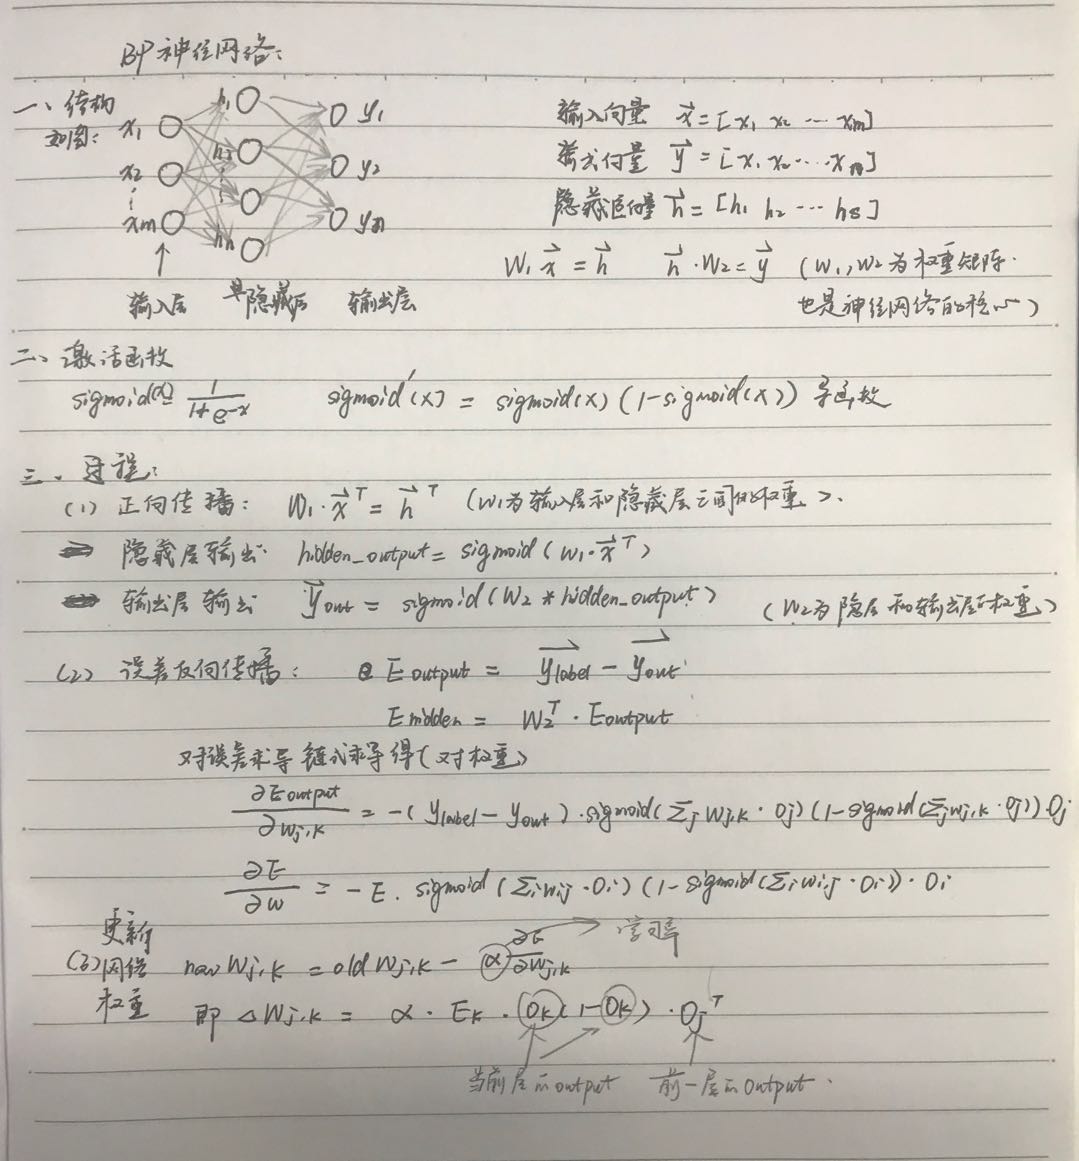 BP神经网络:
一、结构
如图:
x₁ h₁ y₁
x₂ h₂ y₂
⋮
xm hn yn
输入层 隐藏层 输出层
输入向量 x⃗ = [x₁ x₂ … xm]
输出向量 y⃗ = [x₁ x₂ … xn]
隐藏层向量 h⃗ = [h₁ h₂ … hs]
W₁x⃗ = h⃗ h⃗·W₂ = y⃗ (W₁,W₂为权重矩阵.
也是神经网络的核心)
二、激活函数
sigmoid(x)= 1/(1+e^-x) sigmoid'(x) = sigmoid(x)(1-sigmoid(x)) 导函数
三、过程:
(1) 正向传播: W₁·x⃗^T = h⃗^T (W₁为输入层和隐藏层之间的权重).
隐藏层输出 hidden_output = sigmoid(W₁·x⃗^T)
输出层输出 y⃗out = sigmoid(W₂*hidden_output) (W₂为隐层和输出层的权重)
(2) 误差反向传播: Eoutput = ylabel - yout
Ehidden = W₂^T · Eoutput
对误差求导 链式求导得(对权重)
∂Eoutput/∂Wj,k = -(ylabel - yout)·sigmoid(Σj Wj,k · Oj)(1-sigmoid(Σj Wj,k · Oj))·Oj
∂E/∂w = -E · sigmoid(Σi Wij · Oi)(1-sigmoid(Σi Wij · Oi))·Oi
学习率
(3) 更新网络权重 new Wj,k = old Wj,k - α ∂E/∂Wj,k
即 △Wj,k = α · Ek · Ok(1-Ok) · Oj^T
当前层的output 前一层的output.